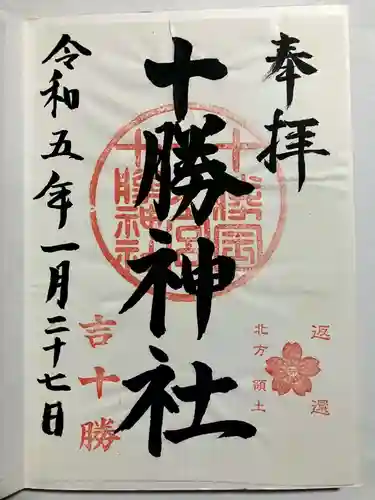 奉拝
十勝神社
令和五年一月二十七日
吉十勝
返還
北方領土
十勝神社